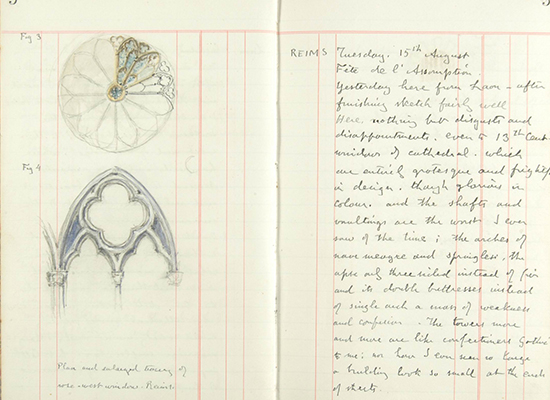 Fig 3
Fig 4
Plan and enlarged tracery of
rose. west window. Reims
REIMS
Tuesday. 15th August
Fête de l'Assomption
Yesterday here from Laon - after
finishing sketch fairly well
Here nothing but disgusts and
disappointments. even to 13th Cent.
windows of cathedral. which
are entirely grotesque and frightful
in design. though glorious in
colour. and the shafts and
vaultings are the worst I ever
saw of the time; the arches of
nave meagre and springless. the
apse only three sided instead of five
and its double buttresses instead
of single arch a mass of weakness
and confusion. The towers more
and more are like confectioners Gothic
to me: nor have I ever seen so large
a building look so small at the ends
of streets.